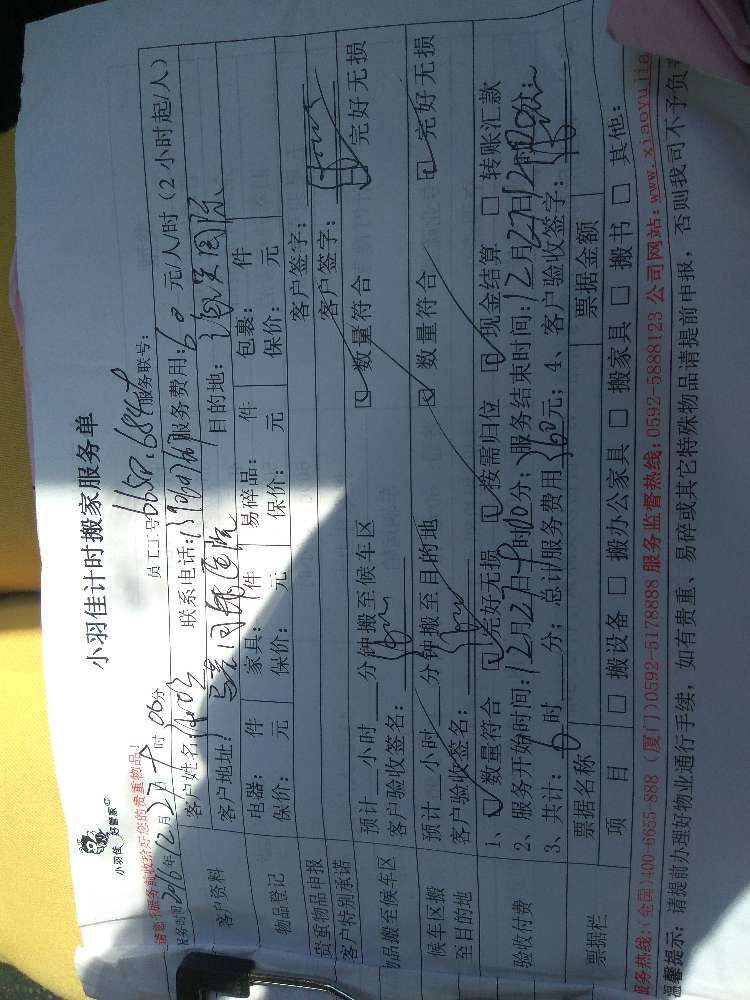 小羽佳 好管家
小羽佳计时搬家服务单
请您于服务前收拾好您的贵重物品！
员工工号：6650.684 服务联号：
服务时间 2016年12月27日 时06分
客户姓名： 联系电话： 服务费用：60 元/人/时（2小时起/人）
客户资料
客户地址： 国际 目的地： 国际
物品登记
电器： 件 家具： 件 易碎品： 件 包裹： 件
保价： 元 保价： 元 保价： 元 保价： 元
贵重物品申报 客户签字：
客户特别承诺 客户签字：
物品搬至候车区
预计___小时___分钟搬至候车区 ☑数量符合 ☑完好无损
客户验收签名：
候车区搬至目的地
预计___小时___分钟搬至目的地 ☑数量符合 ☑完好无损
客户验收签名：
验收付费
1、☑数量符合 ☑完好无损 ☑按需归位 ☑现金结算 □转账汇款
2、服务开始时间：12月27日 时00分；服务结束时间：12月27日12时
3、共计： 时 分；总计服务费用360元；4、客户验收签字：
票据栏
票据名称 票据金额
项 目 □ 搬设备 □ 搬办公家具 □ 搬家具 □ 搬书 □ 其他：
服务热线：(全国)400-6655-888 (厦门)0592-5178888 服务监督热线：0592-5888123 公司网站：www.xiaoyujia
温馨提示：请提前办理好物业通行手续，如有贵重、易碎或其它特殊物品请提前申报，否则我司不予负